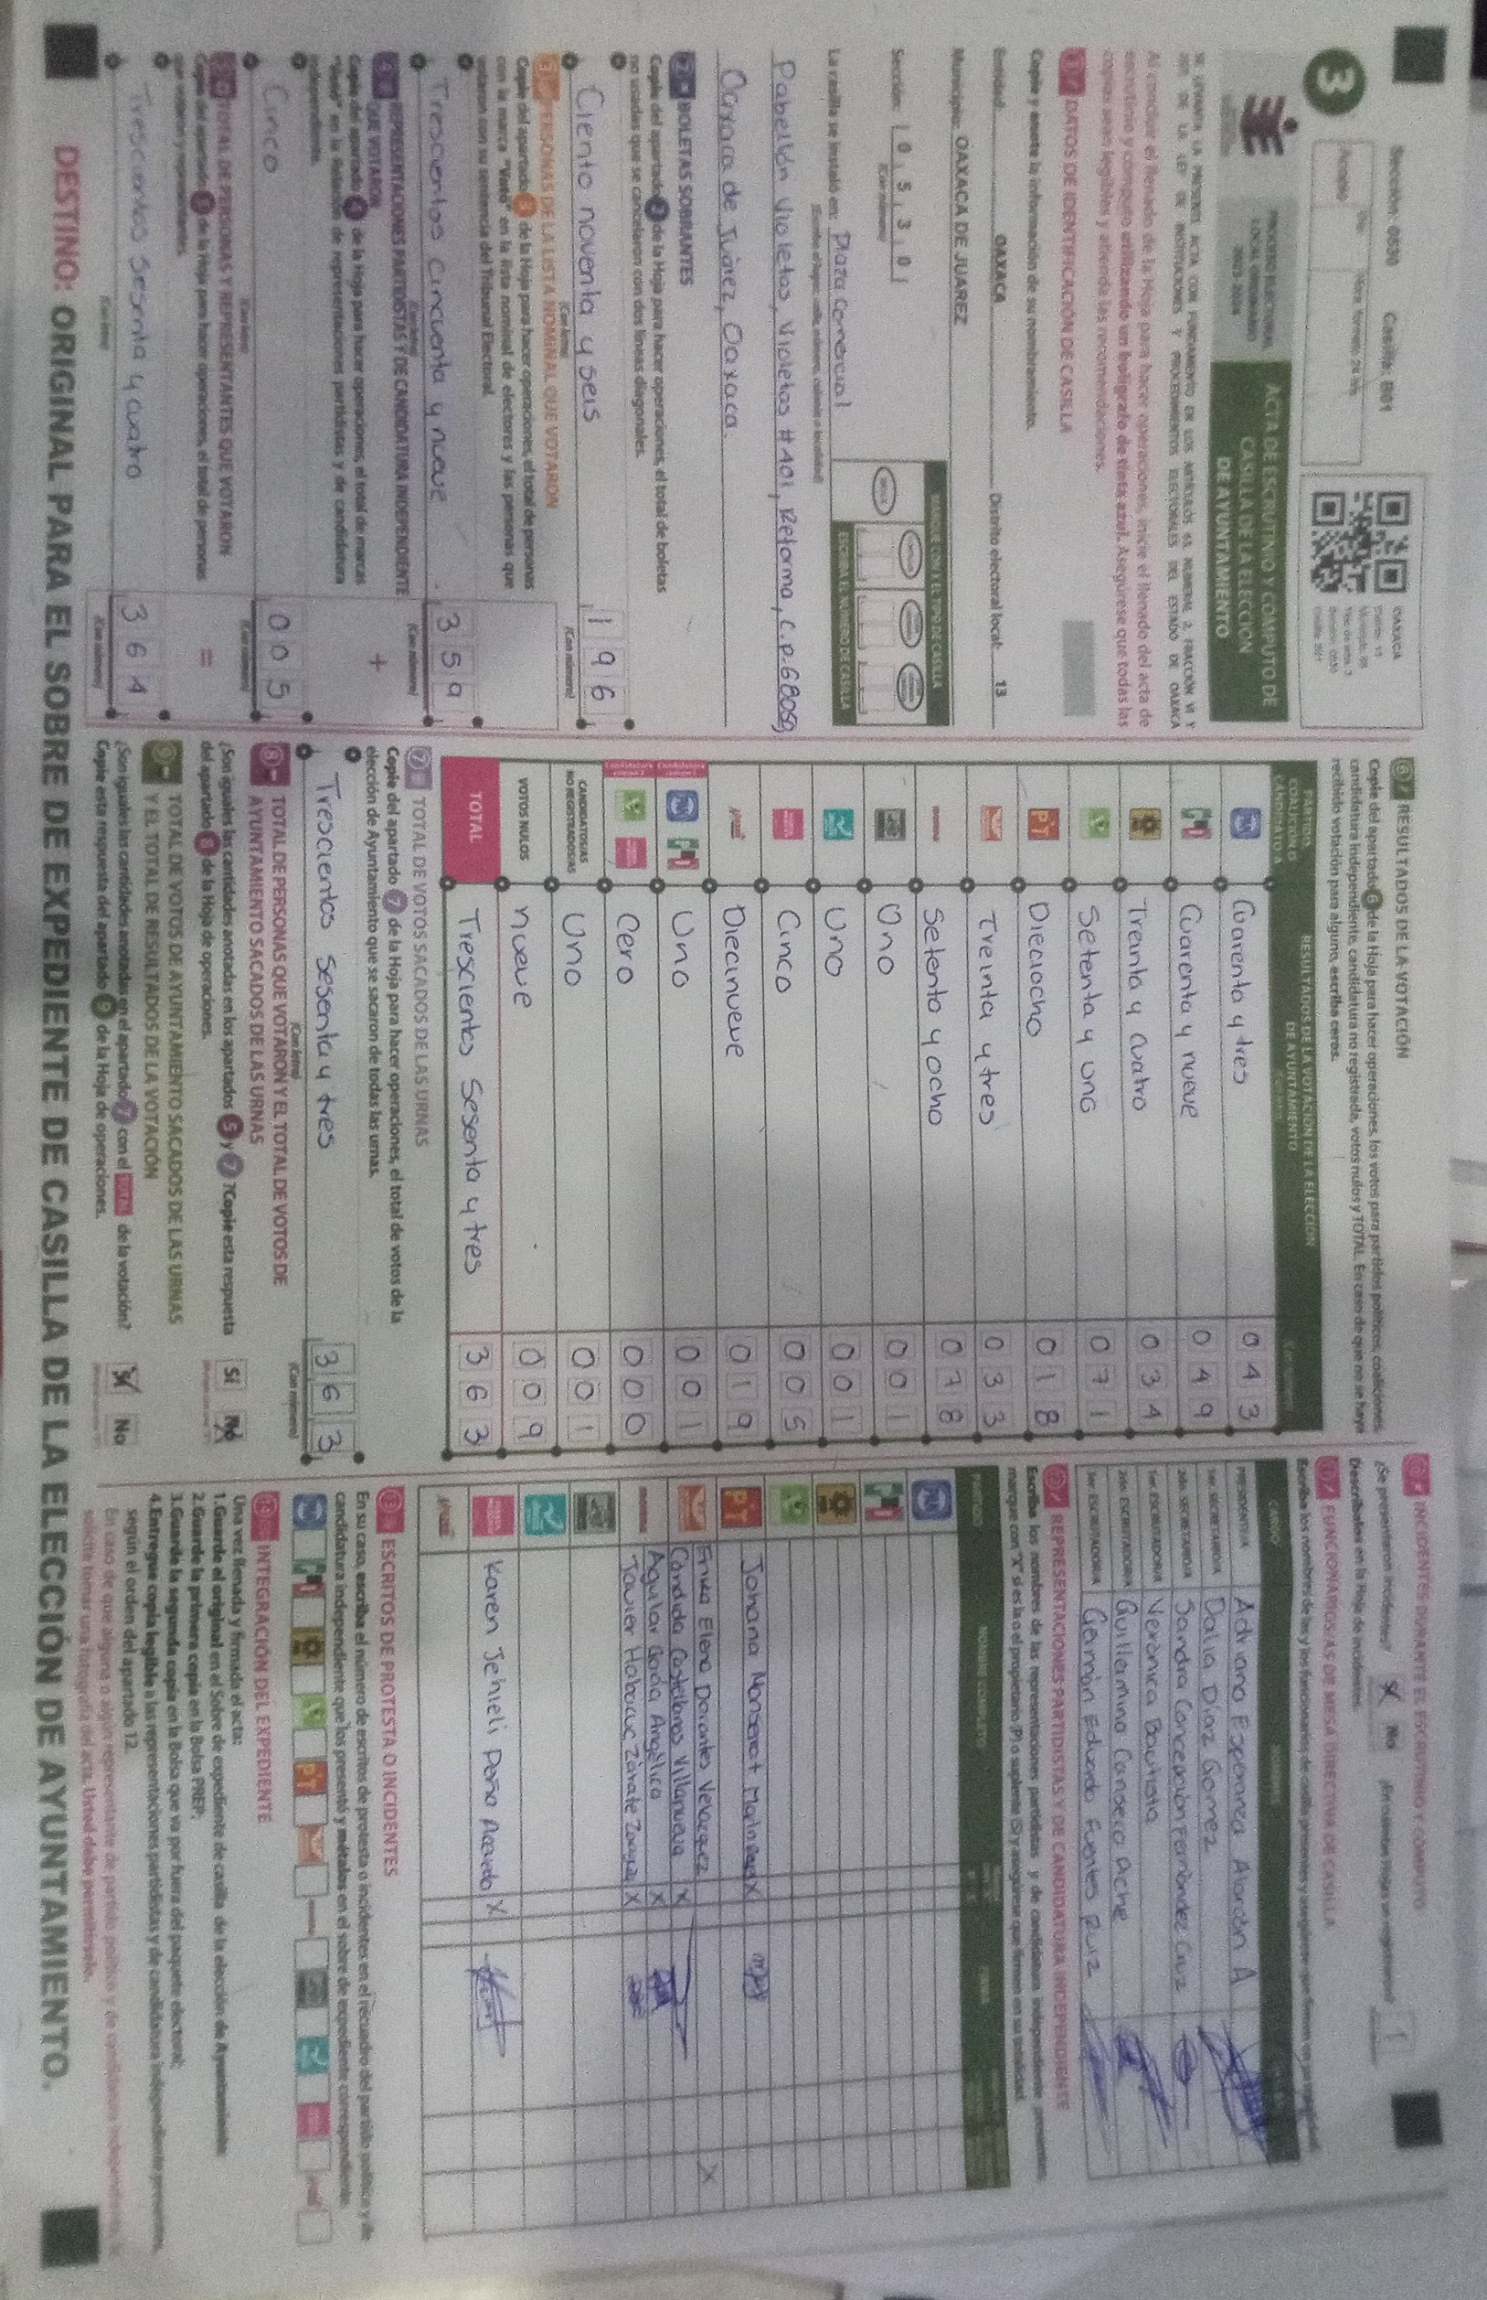 Sección: 0530 Casilla: B01
3
PROCESO ELECTORAL
LOCAL ORDINARIO
2023-2024
ACTA DE ESCRUTINIO Y CÓMPUTO DE
CASILLA DE LA ELECCIÓN
DE AYUNTAMIENTO
OAXACA
SE LEVANTA LA PRESENTE ACTA CON FUNDAMENTO EN LOS ARTÍCULOS
DE LA LEY DE INSTITUCIONES Y PROCEDIMIENTOS ELECTORALES DEL ESTADO DE OAXACA
Al concluir el llenado de la Hoja para hacer operaciones, inicie el llenado del acta de
escrutinio y cómputo utilizando un bolígrafo de tinta azul. Asegúrese que todas las
copias sean legibles y atienda las recomendaciones.
1 DATOS DE IDENTIFICACIÓN DE CASILLA
Copie y anote la información de su nombramiento.
Entidad: OAXACA Distrito electoral local: 13
Municipio: OAXACA DE JUAREZ
Sección: 0 5 3 0
(Con número)
MARQUE CON X EL TIPO DE CASILLA
ESCRIBA EL NÚMERO DE CASILLA
La casilla se instaló en: Plaza Comercial
Pabellón Violetas, Violetas #401, Reforma, C.P. 68050
Oaxaca de Juárez, Oaxaca.
2 BOLETAS SOBRANTES
Copie del apartado 2 de la Hoja para hacer operaciones, el total de boletas
no usadas que se cancelaron con dos líneas diagonales.
Ciento noventa y seis 1 9 6
(Con letra) (Con número)
3 PERSONAS DE LA LISTA NOMINAL QUE VOTARON
Copie del apartado 3 de la Hoja para hacer operaciones, el total de personas
con la marca "Votó" en la lista nominal de electores y las personas que
votaron con su sentencia del Tribunal Electoral.
Trescientos cincuenta y nueve 3 5 9
(Con letra) (Con número)
4 REPRESENTACIONES PARTIDISTAS Y DE CANDIDATURA INDEPENDIENTE
QUE VOTARON
+
Copie del apartado 4 de la Hoja para hacer operaciones, el total de marcas
"Votó" en la Relación de representaciones partidistas y de candidatura
independiente.
Cinco 0 0 5
(Con letra) (Con número)
5 TOTAL DE PERSONAS Y REPRESENTANTES QUE VOTARON
=
Copie del apartado 5 de la Hoja para hacer operaciones, el total de personas
que votaron y representantes.
Trescientos sesenta y cuatro 3 6 4
(Con letra) (Con número)
6 RESULTADOS DE LA VOTACIÓN
Copie del apartado 6 de la Hoja para hacer operaciones, los votos para partidos políticos, coaliciones,
candidatura independiente, candidatura no registrada, votos nulos y TOTAL. En caso de que no se haya
recibido votación para alguno, escriba ceros.
PARTIDO,
COALICIÓN O
CANDIDATO/A
RESULTADOS DE LA VOTACIÓN DE LA ELECCIÓN
DE AYUNTAMIENTO
PAN Cuarenta y tres 0 4 3
PRI Cuarenta y nueve 0 4 9
Treinta y cuatro 0 3 4
Setenta y uno 0 7 1
PT Dieciocho 0 1 8
Treinta y tres 0 3 3
morena Setenta y ocho 0 7 8
Uno 0 0 1
Uno 0 0 1
Cinco 0 0 5
Diecinueve 0 1 9
PAN PRI Uno 0 0 1
Cero 0 0 0
CANDIDATOS/AS
NO REGISTRADOS/AS Uno 0 0 1
VOTOS NULOS nueve 0 0 9
TOTAL Trescientos sesenta y tres 3 6 3
7 TOTAL DE VOTOS SACADOS DE LAS URNAS
Copie del apartado 7 de la Hoja para hacer operaciones, el total de votos de la
elección de Ayuntamiento que se sacaron de todas las urnas.
Trescientos sesenta y tres 3 6 3
(Con letra) (Con número)
8 TOTAL DE PERSONAS QUE VOTARON Y EL TOTAL DE VOTOS DE
AYUNTAMIENTO SACADOS DE LAS URNAS
¿Son iguales las cantidades anotadas en los apartados 5 y 7 ? Copie esta respuesta
del apartado 8 de la Hoja de operaciones. Sí No
9 TOTAL DE VOTOS DE AYUNTAMIENTO SACADOS DE LAS URNAS
Y EL TOTAL DE RESULTADOS DE LA VOTACIÓN
¿Son iguales las cantidades anotadas en el apartado 7 con el TOTAL de la votación?
Copie esta respuesta del apartado 9 de la Hoja de operaciones. Sí No
INCIDENTES DURANTE EL ESCRUTINIO Y CÓMPUTO
¿Se presentaron incidentes? Sí No 1
Descríbalos en la Hoja de incidentes.
FUNCIONARIOS/AS DE MESA DIRECTIVA DE CASILLA
CARGO NOMBRE
PRESIDENTE/A Adriana Esperanza Alarcón A
1er. SECRETARIO/A Dalia Díaz Gomez
2do. SECRETARIO/A Sandra Concepción Fernández Cruz
1er. ESCRUTADOR/A Verónica Bautista
2do. ESCRUTADOR/A Guillermina Canseco
3er. ESCRUTADOR/A Germán Eduardo Fuentes Ruiz
REPRESENTACIONES PARTIDISTAS Y DE CANDIDATURA INDEPENDIENTE
Escriba los nombres de las representaciones partidistas y de candidatura independiente presentes,
marque con "X" si es la o el propietario (P) o suplente (S) y asegúrese que firmen en su totalidad.
PARTIDO NOMBRE COMPLETO
PAN
PRI
PT Johana Monserrat X
Erika Elena Dorantes Velazquez X
Candida Castellanos Villanueva X
Aguilar García Angélica X
morena Javier Habacuc Zárate X
Karen Jehieli Peña Acevedo X
ESCRITOS DE PROTESTA O INCIDENTES
En su caso, escriba el número de escritos de protesta o incidentes en el recuadro del partido político y de
candidatura independiente que los presentó y métalos en el sobre de expediente correspondiente.
INTEGRACIÓN DEL EXPEDIENTE
Una vez llenada y firmada el acta:
1.Guarde el original en el Sobre de expediente de casilla de la elección de Ayuntamiento;
2.Guarde la primera copia en la Bolsa PREP;
3.Guarde la segunda copia en la Bolsa que va por fuera del paquete electoral;
4.Entregue copia legible a las representaciones partidistas y de candidatura independiente presentes,
según el orden del apartado 12.
En caso de que alguna o algún representante de partido político y de candidatura independiente
solicite tomar una fotografía del acta, Usted debe permitírselo.
DESTINO: ORIGINAL PARA EL SOBRE DE EXPEDIENTE DE CASILLA DE LA ELECCIÓN DE AYUNTAMIENTO.